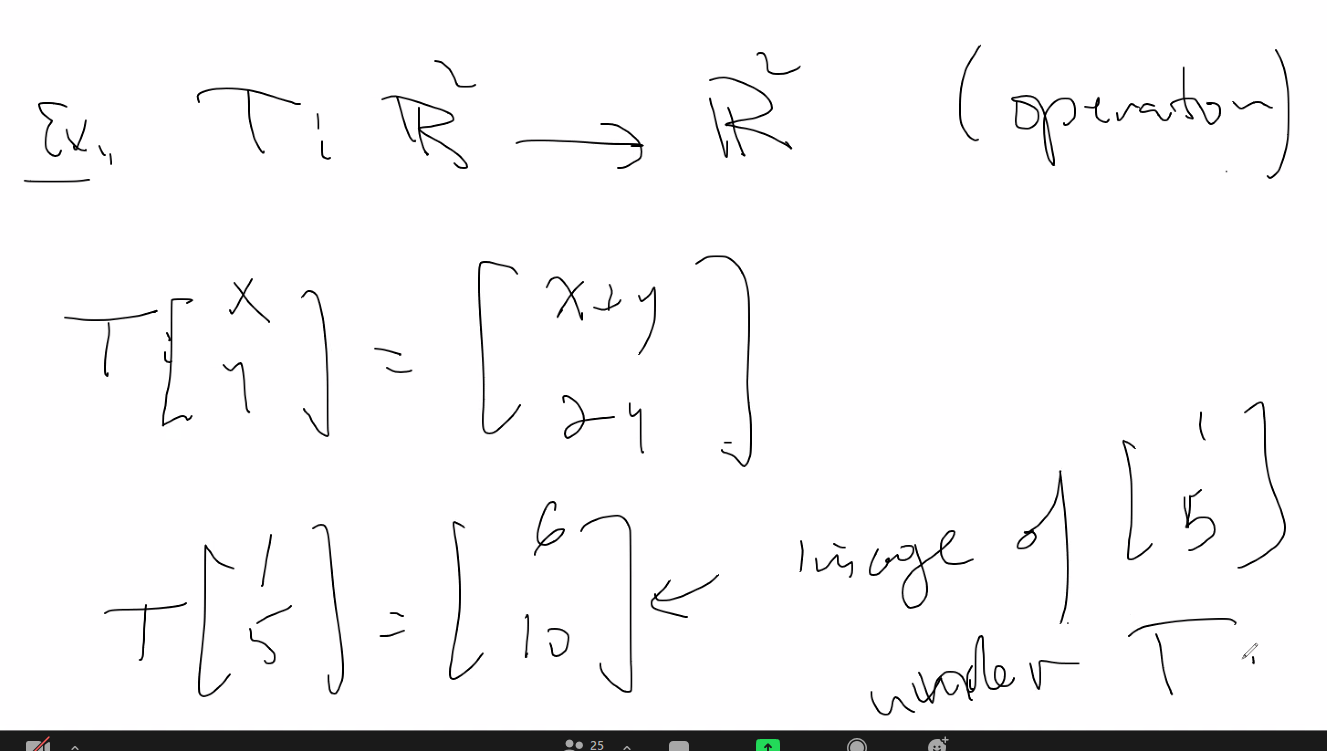 Ex. T: ℝ² → ℝ² (operation)
T [x y] = [x+y 2y]
T [1 5] = [6 10] ← image of [1 5]
under T.
25